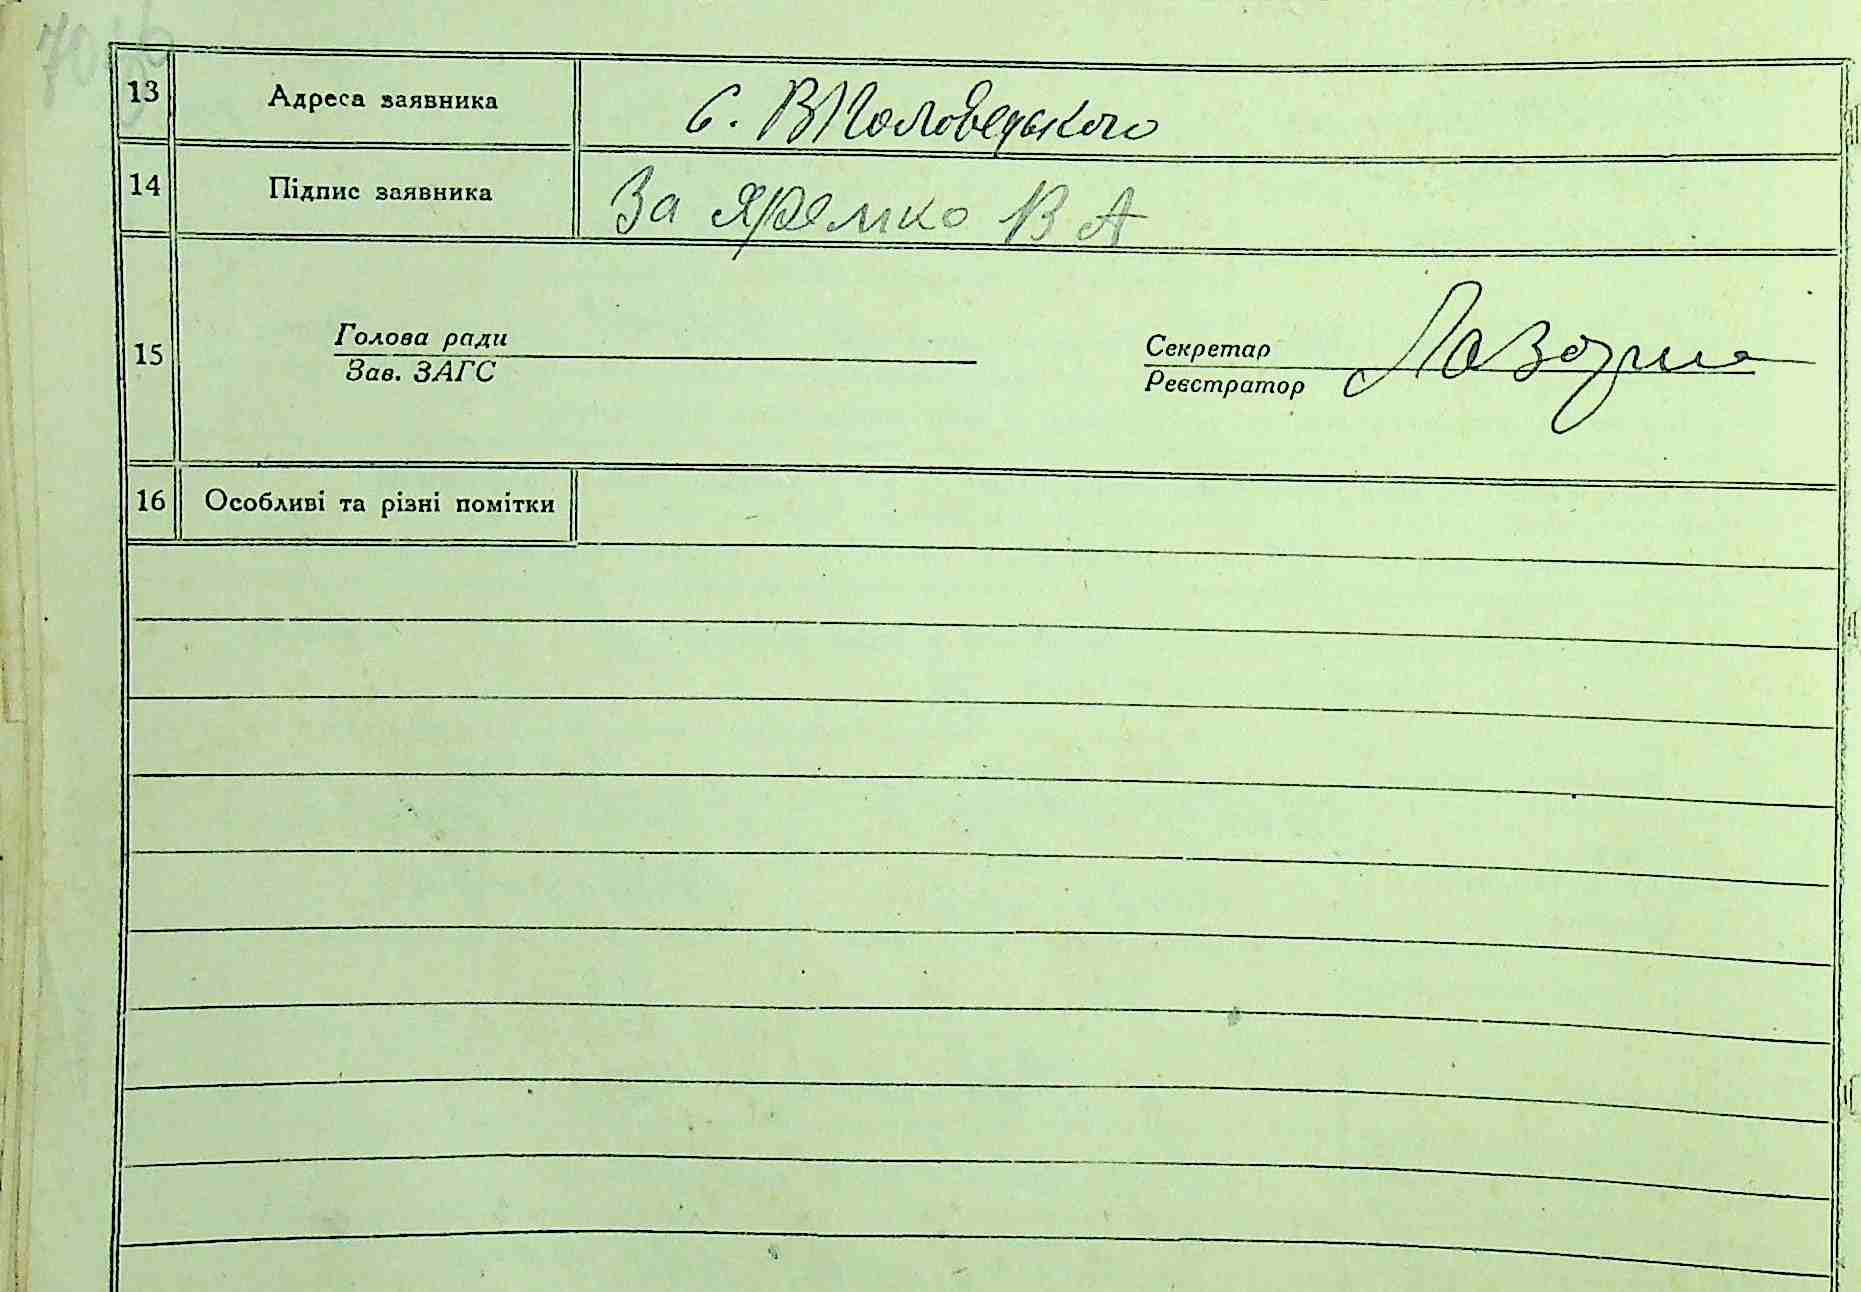 70зв
13 Адреса заявника с. ВПоловецького
14 Підпис заявника За Яремко В А
Голова ради Секретар
15
Зав. ЗАГС Реєстратор
16 Особливі та різні помітки